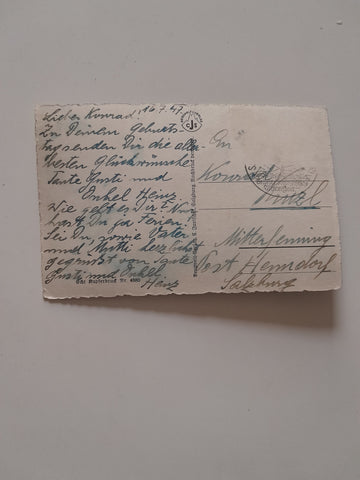 16.7.47
Lieber Konrad!
Zu Deinem Geburts-
tag senden Dir die aller-
besten Glückwünsche
Tante Gusti und
Onkel Heinz
Wie geht es Dir? Nun
hast Du ja Ferien.
Sei Du, sowie Vater
und Mutti herzlichst
gegrüßt von Tante
Gusti und Onkel
Heinz
Echt Kupferdruck Nr.
An
Konrad
Mitterfenning
Post Henndorf
Salzburg